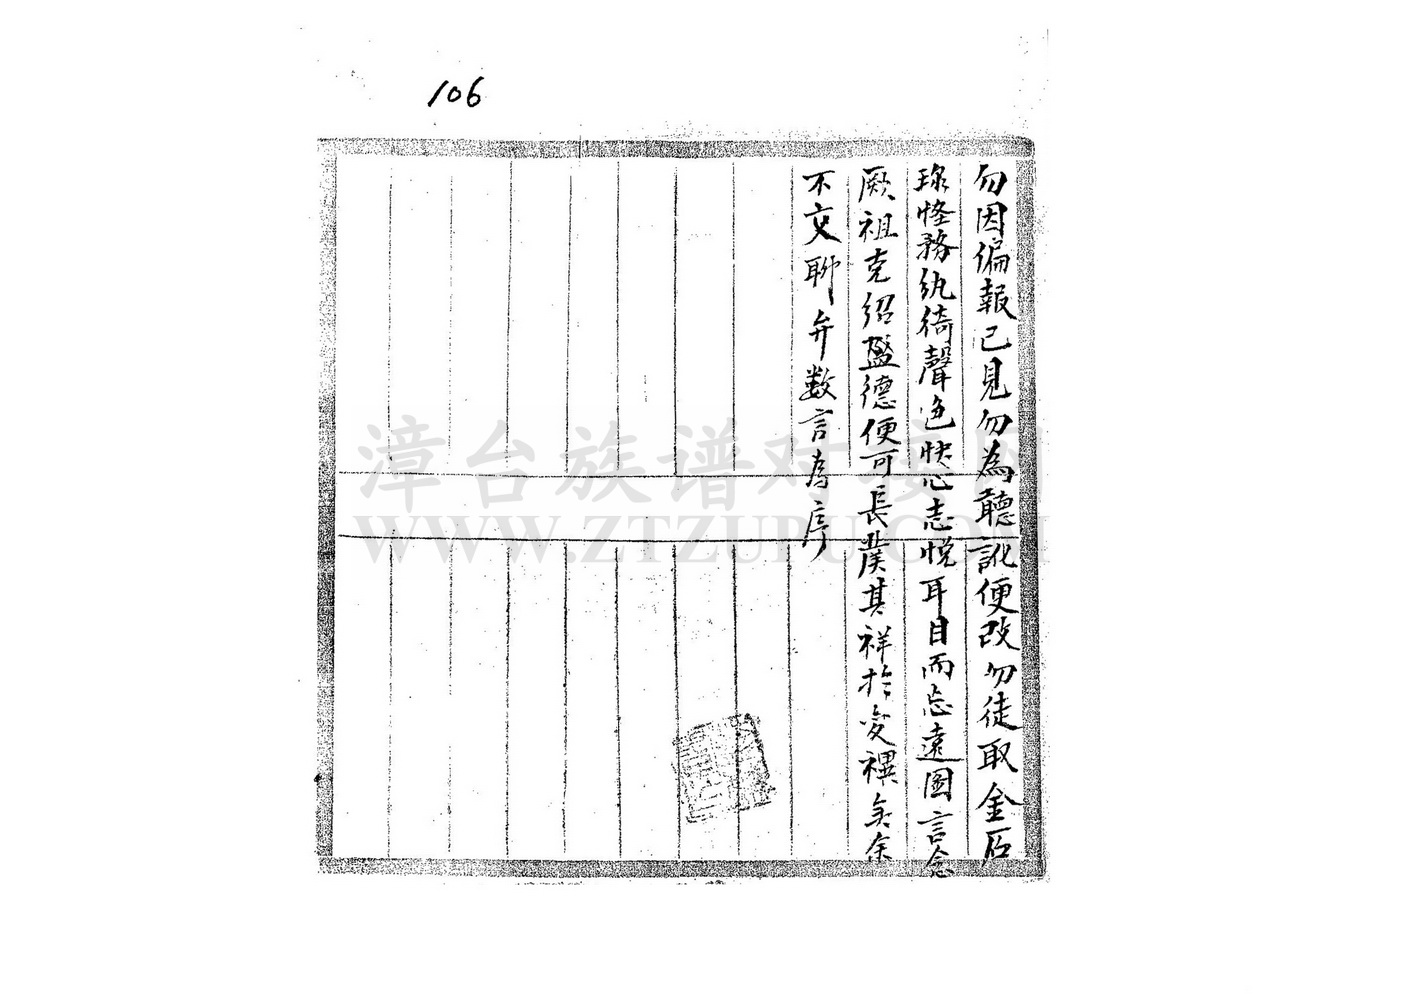 106
勿因偏報已見勿為聽訛便改勿徒取金石
珎怪務紈綺聲色快心志悅耳目而忘遠圖言念
厥祖克紹盛德便可長發其祥於奕禩矣余
不文聊弁数言為序
漳台族谱对接网
WWW.ZTZUPU.COM